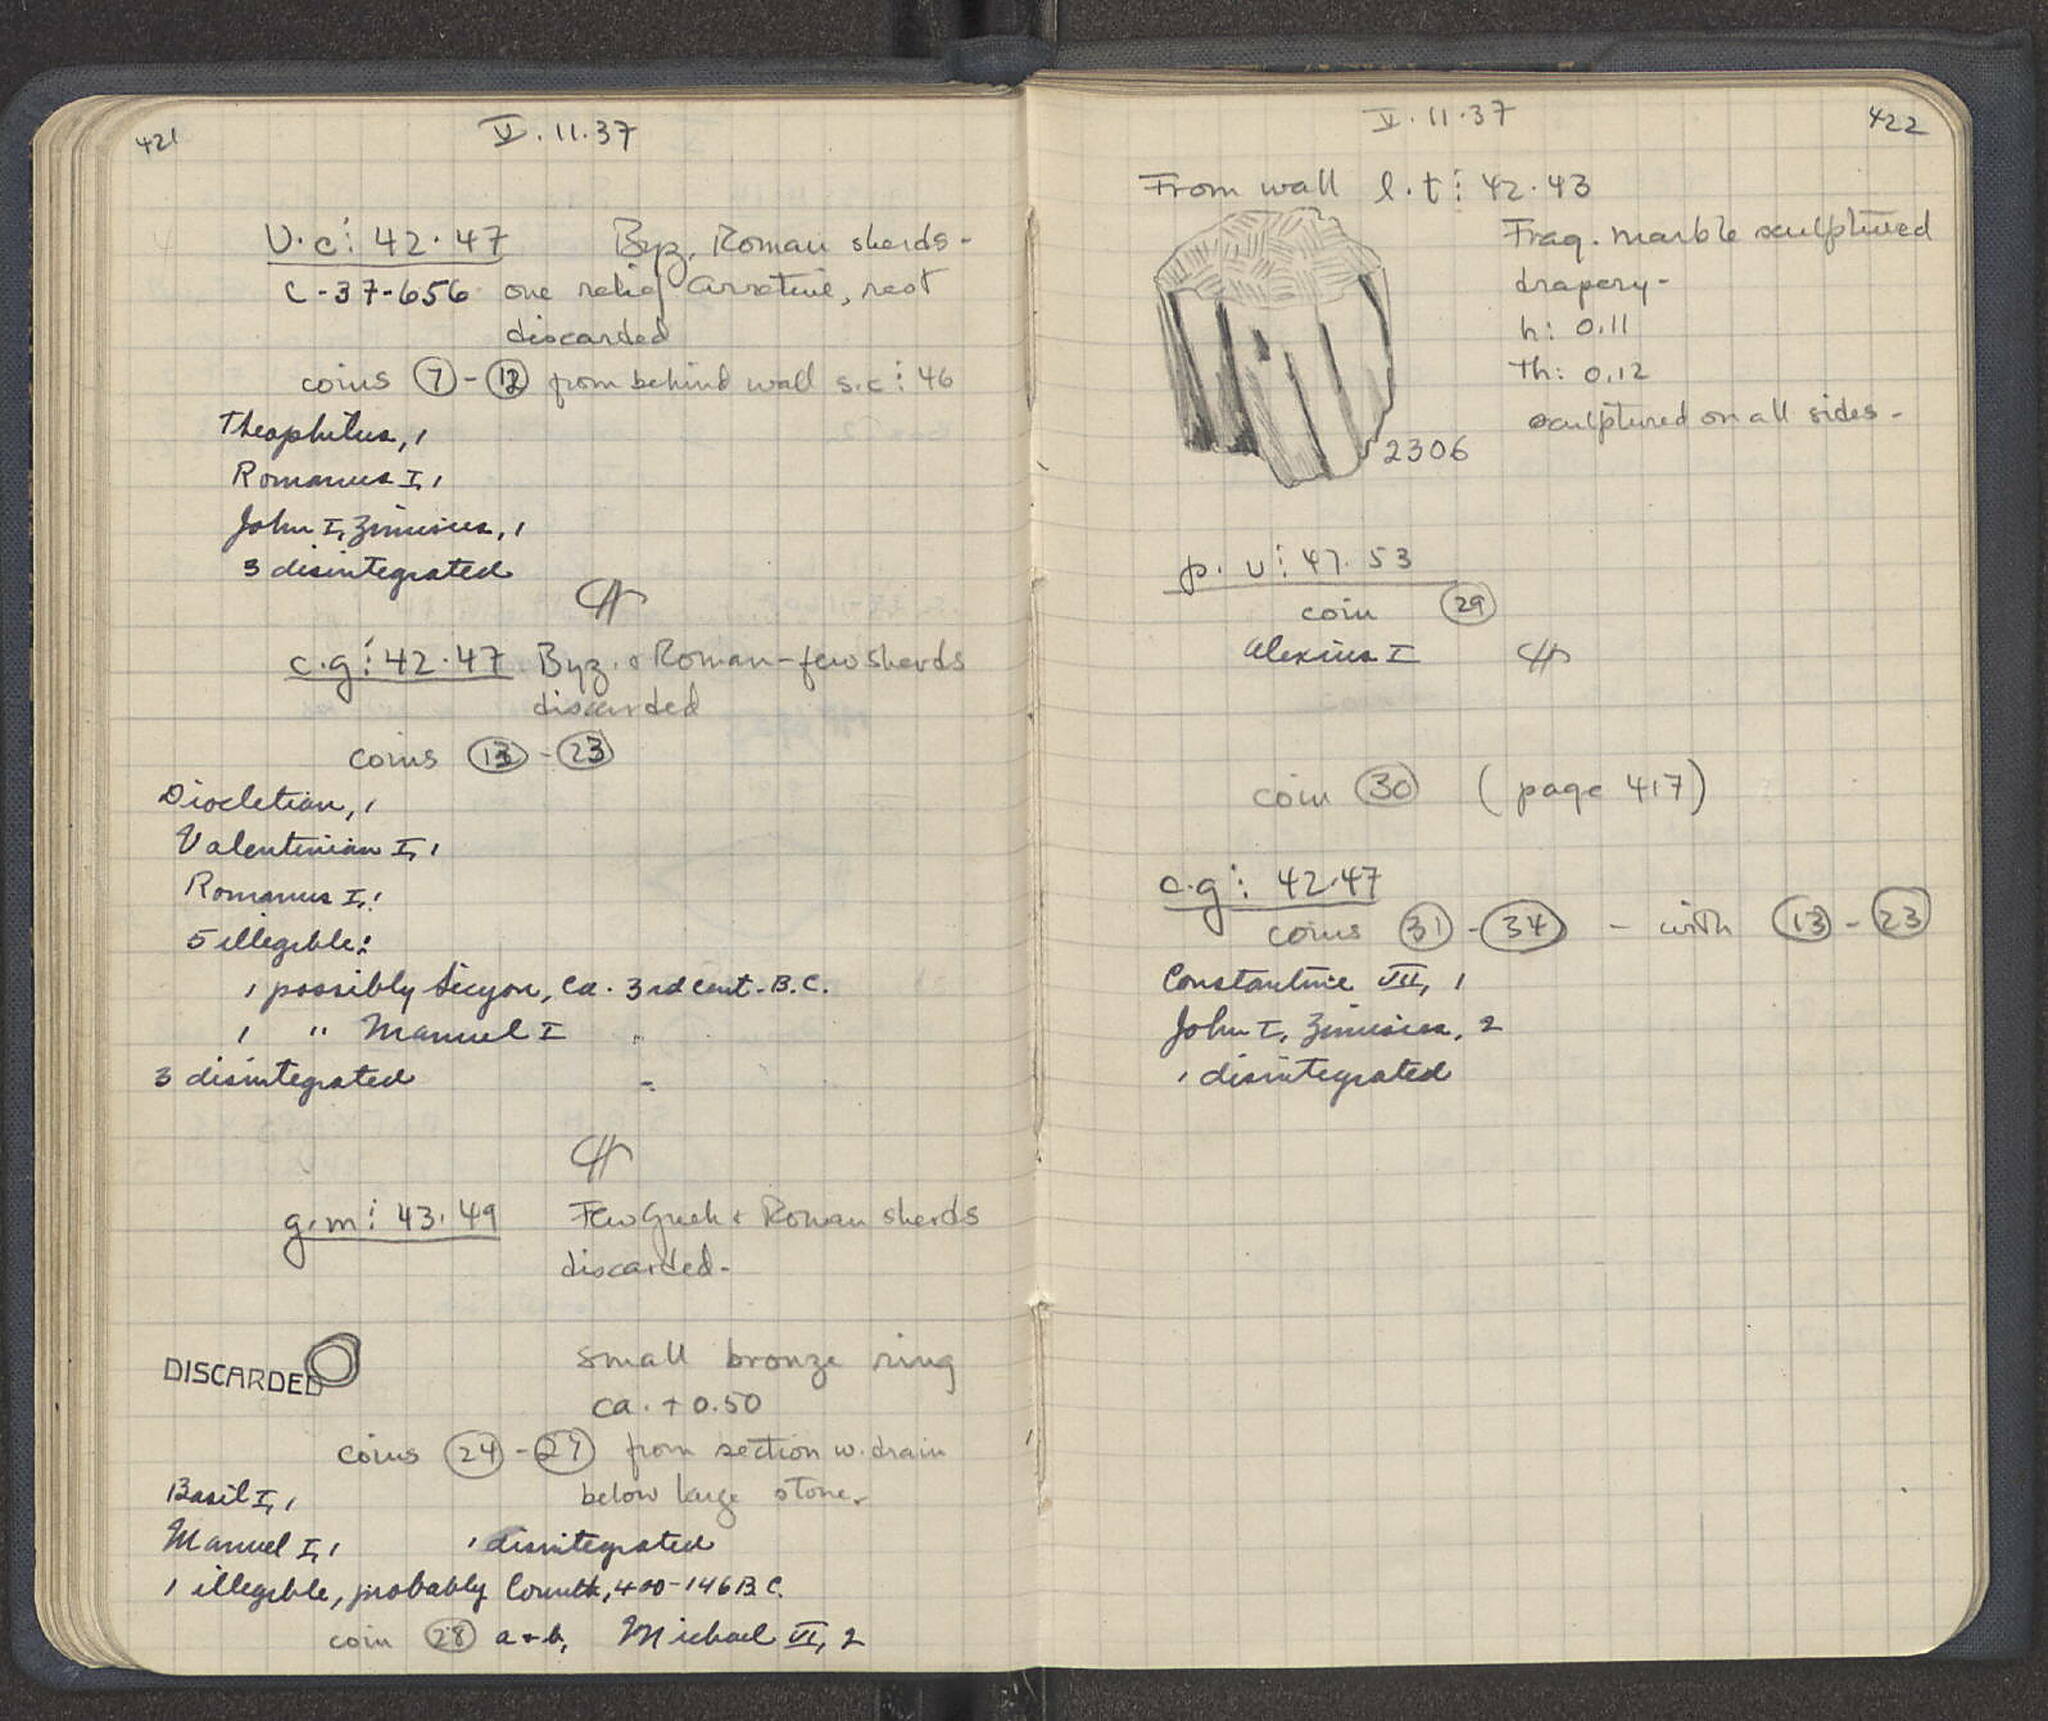 421
V.11.37
U.c⋮ 42.47 Byz, Roman sherds-
C-37-656 one relief Arretine, rest
discarded
coins 7-12 from behind wall s.c⋮46
Theophilus, 1
Romanus I, 1
John I, Zimisces, 1
3 disintegrated
c.g⋮42.47 Byz. + Roman-few sherds
discarded
coins 13-23
Diocletian, 1
Valentinian I, 1
Romanus I, 1
5 illegible:
1 possibly Sicyon, ca. 3rd cent. B.C.
1 " Manuel I
3 disintegrated
g.m⋮ 43.49 Few Greek + Roman sherds
discarded-
DISCARDED
small bronze ring
ca. + 0.50
coins 24-27 from section w. drain
below large stone.
Basil I, 1
Manuel I, 1 1 disintegrated
1 illegible, probably Corinth, 400-146 B.C.
coin 28 a+b, Michael VI, 2
V.11.37
422
From wall l.t⋮ 42.43
Frag. marble sculptured
drapery-
h: 0.11
Th: 0.12
sculptured on all sides-
2306
p. u⋮ 47.53
coin 29
Alexius I
coin 30 (page 417)
c.g⋮ 42.47
coins 31-34 - with 13-23
Constantine VII, 1
John I, Zimisces, 2
1 disintegrated